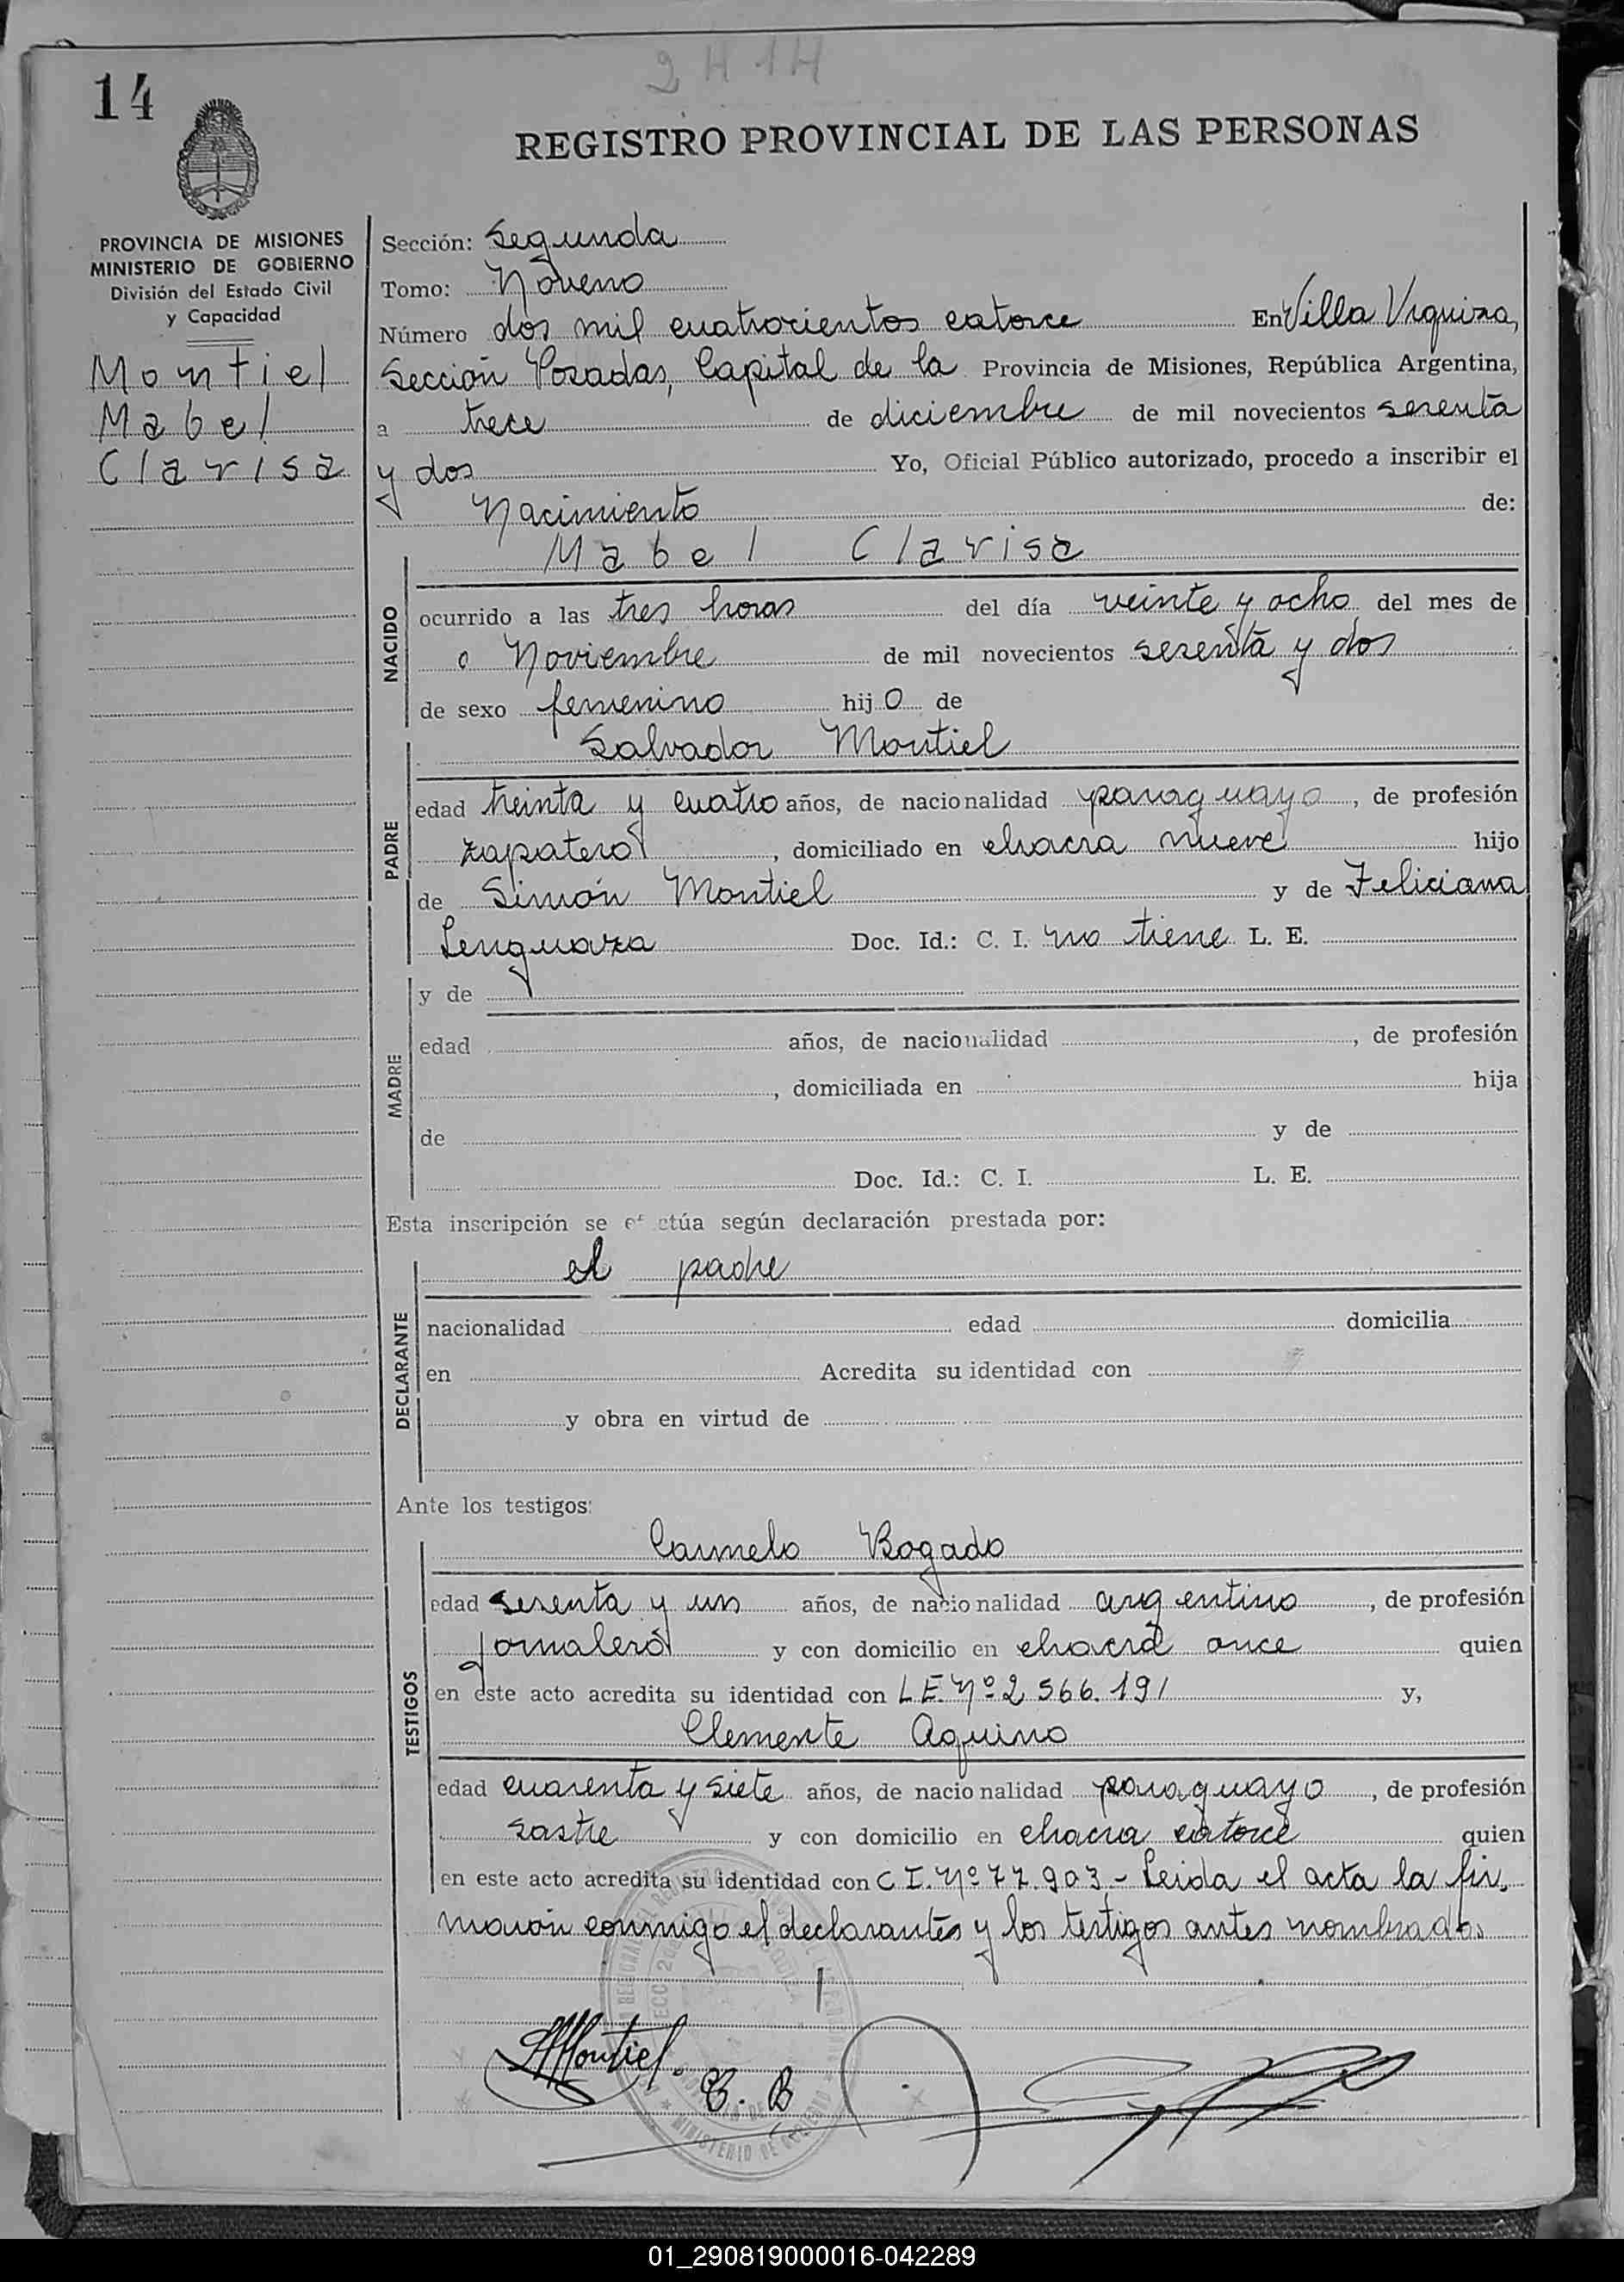 2414
14
REGISTRO PROVINCIAL DE LAS PERSONAS
PROVINCIA DE MISIONES
MINISTERIO DE GOBIERNO
División del Estado Civil
y Capacidad
Montiel
Mabel
Clarisa
Sección: Segunda
Tomo: Noveno
Número dos mil cuatrocientos catorce En Villa Urquiza,
Sección Posadas, Capital de la Provincia de Misiones, República Argentina,
a trece de diciembre de mil novecientos sesenta
y dos Yo, Oficial Público autorizado, procedo a inscribir el
Nacimiento de:
Mabel Clarisa
NACIDO
ocurrido a las tres horas del día veinte y ocho del mes de
Noviembre de mil novecientos sesenta y dos
de sexo femenino hijo de
Salvador Montiel
PADRE
edad treinta y cuatro años, de nacionalidad paraguayo, de profesión
zapatero, domiciliado en chacra nueve hijo
de Simón Montiel y de Feliciana
Lenguaza Doc. Id.: C. I. no tiene L. E.
MADRE
y de
edad años, de nacionalidad , de profesión
, domiciliada en hija
de y de
Doc. Id.: C. I. L. E.
Esta inscripción se efectúa según declaración prestada por:
el padre
DECLARANTE
nacionalidad edad domicilia
en Acredita su identidad con
y obra en virtud de
Ante los testigos:
Carmelo Bogado
TESTIGOS
edad sesenta y un años, de nacionalidad argentino, de profesión
jornalero y con domicilio en chacra once quien
en este acto acredita su identidad con L.E. Nº 2.566.191 y,
Clemente Aquino
edad cuarenta y siete años, de nacionalidad paraguayo, de profesión
sastre y con domicilio en chacra catorce quien
en este acto acredita su identidad con C I. Nº 77.903.- Leida el acta la fir-
maron conmigo el declarantes y los testigos antes nombrados
SMontiel.
C. B
01_290819000016-042289